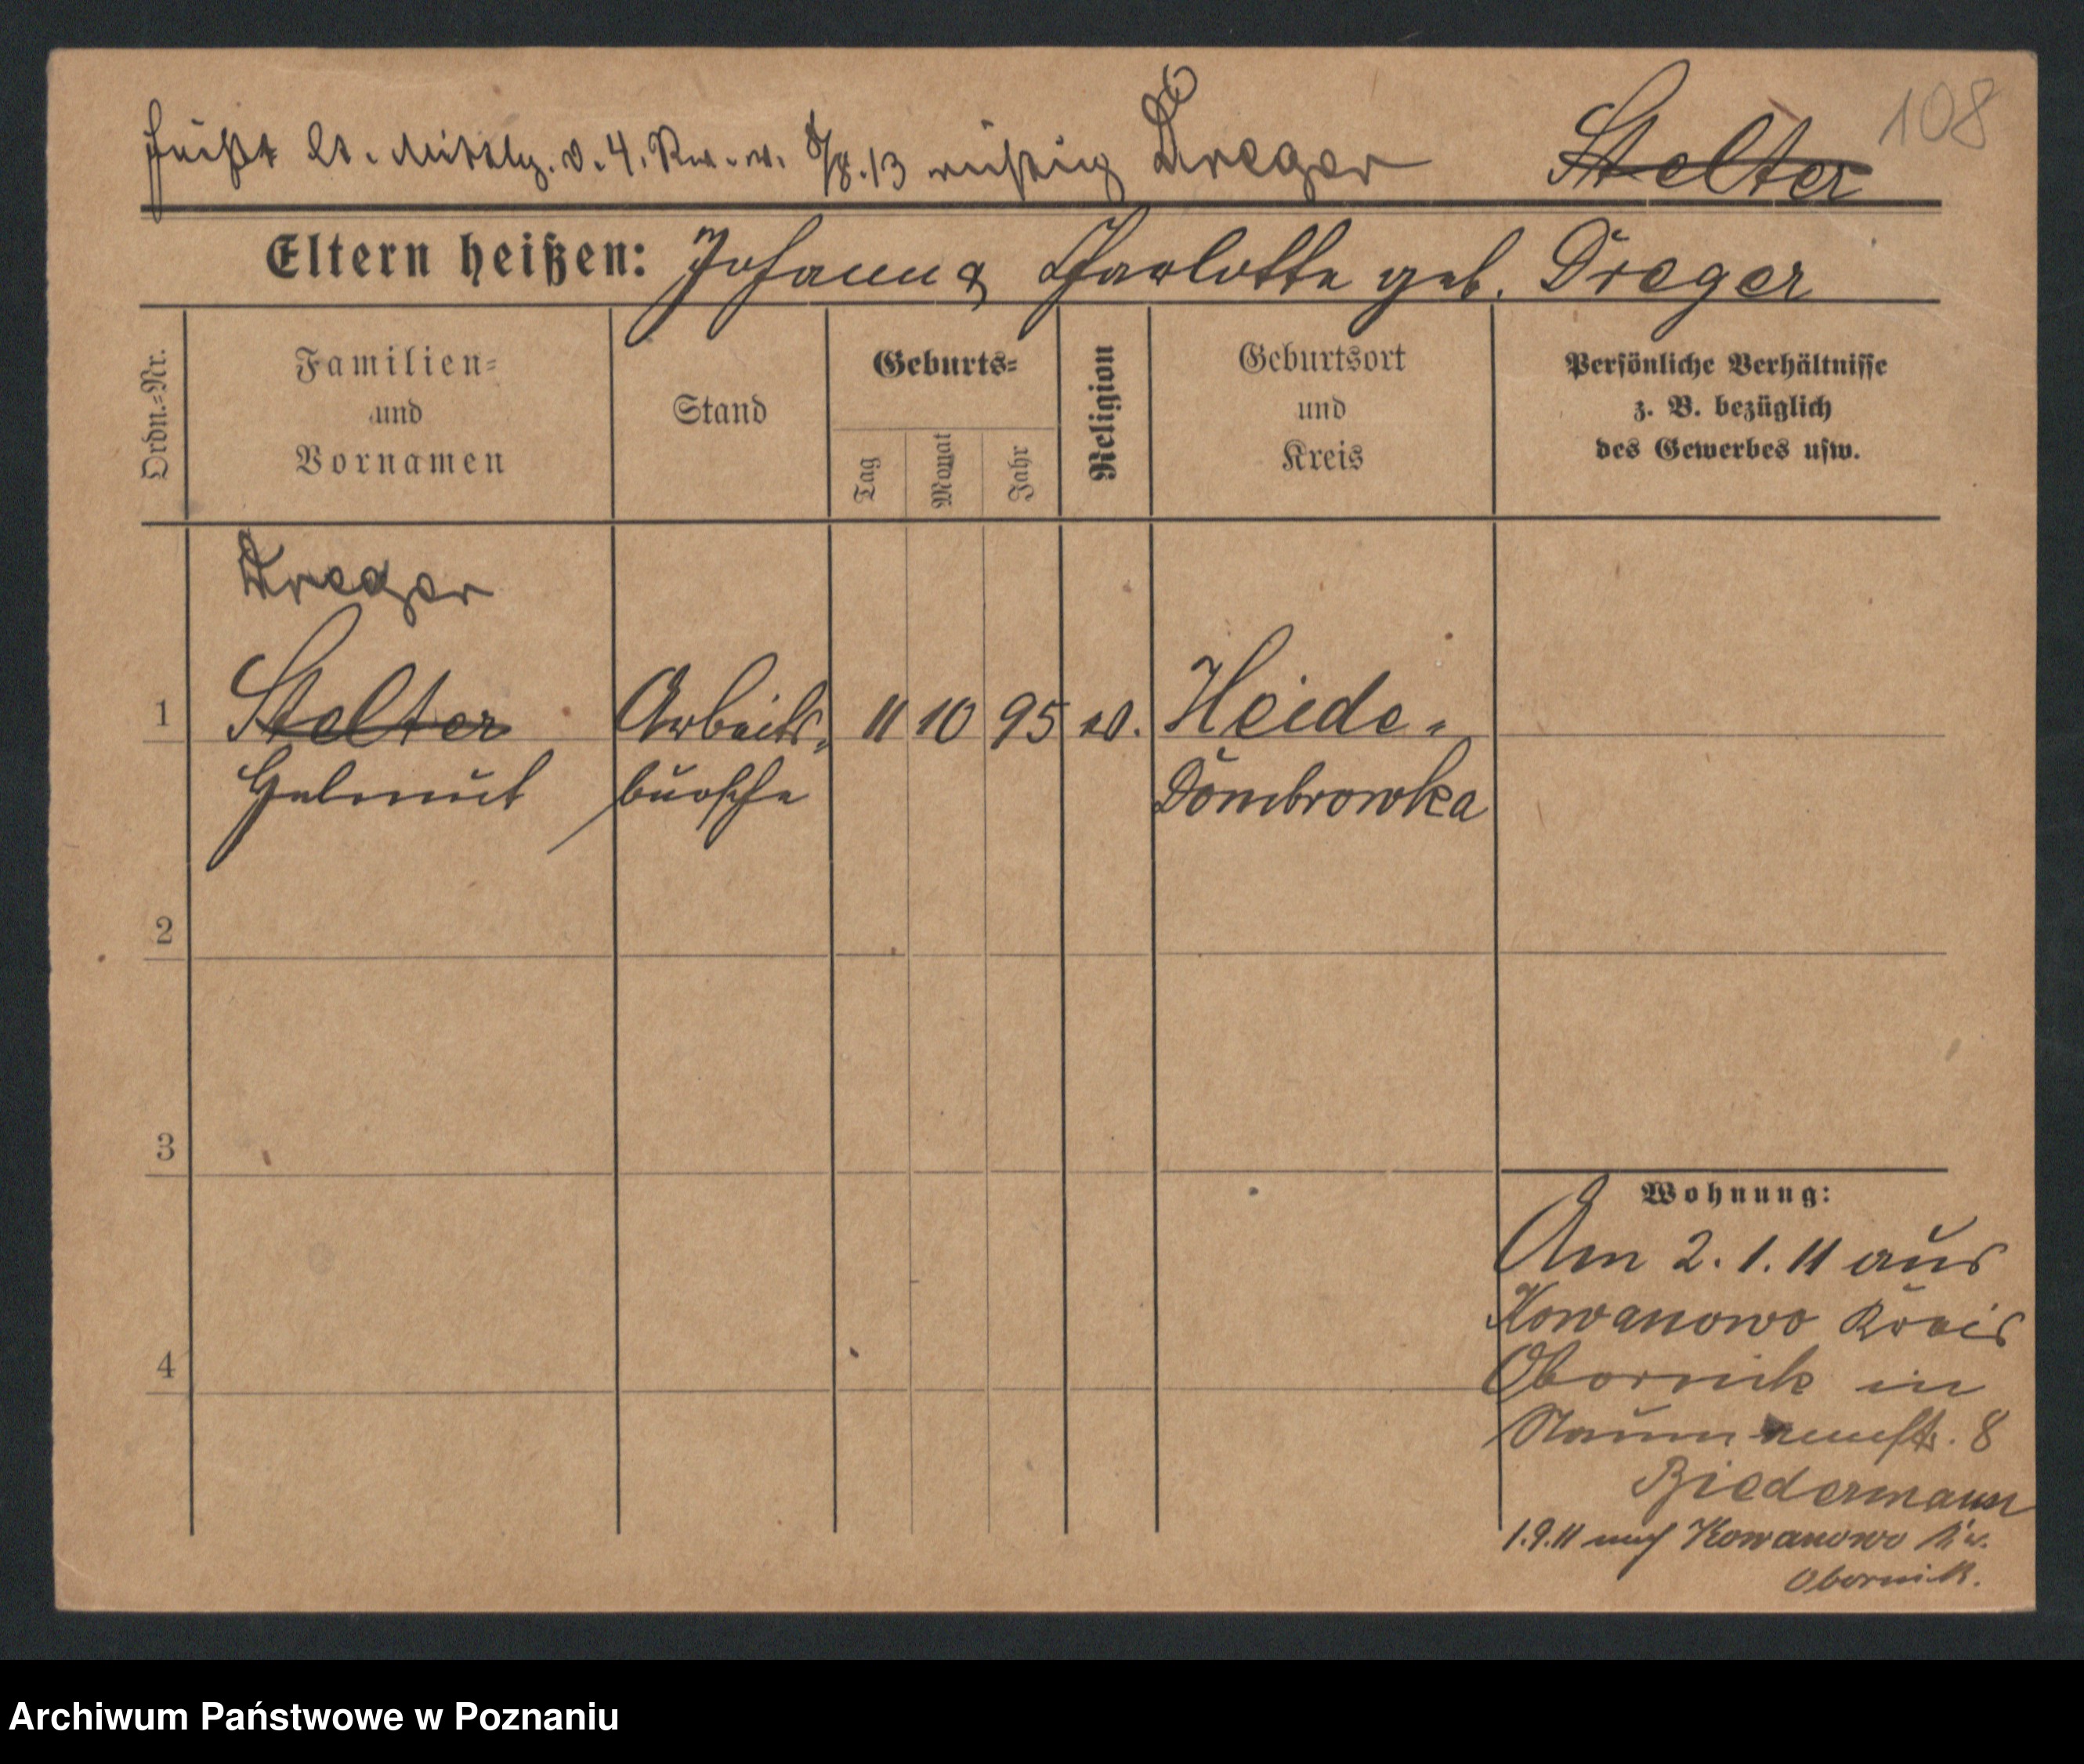 heißt lt. Mittlg. v. 4. Rw. v. 8/8.13 richtig Dreger Stelter 108
Eltern heißen: Johann & Charlotte geb. Dreger
Ordn.-Nr.
Familien-
und
Vornamen
Stand
Geburts-
Tag
Monat
Jahr
Religion
Geburtsort
und
Kreis
Persönliche Verhältnisse
z. B. bezüglich
des Gewerbes usw.
Dreger
1 Stelter Arbeits- 11 10 95 ev. Heide-
Helmut bursche Dombrowka
2
3
4
Wohnung:
Am 2.1.11 aus
Kowanowo Kreis
Obornik in
Naumannstr. 8
Biedermann
1.9.11 nach Kowanowo Kr.
Obornik.
Archiwum Państwowe w Poznaniu